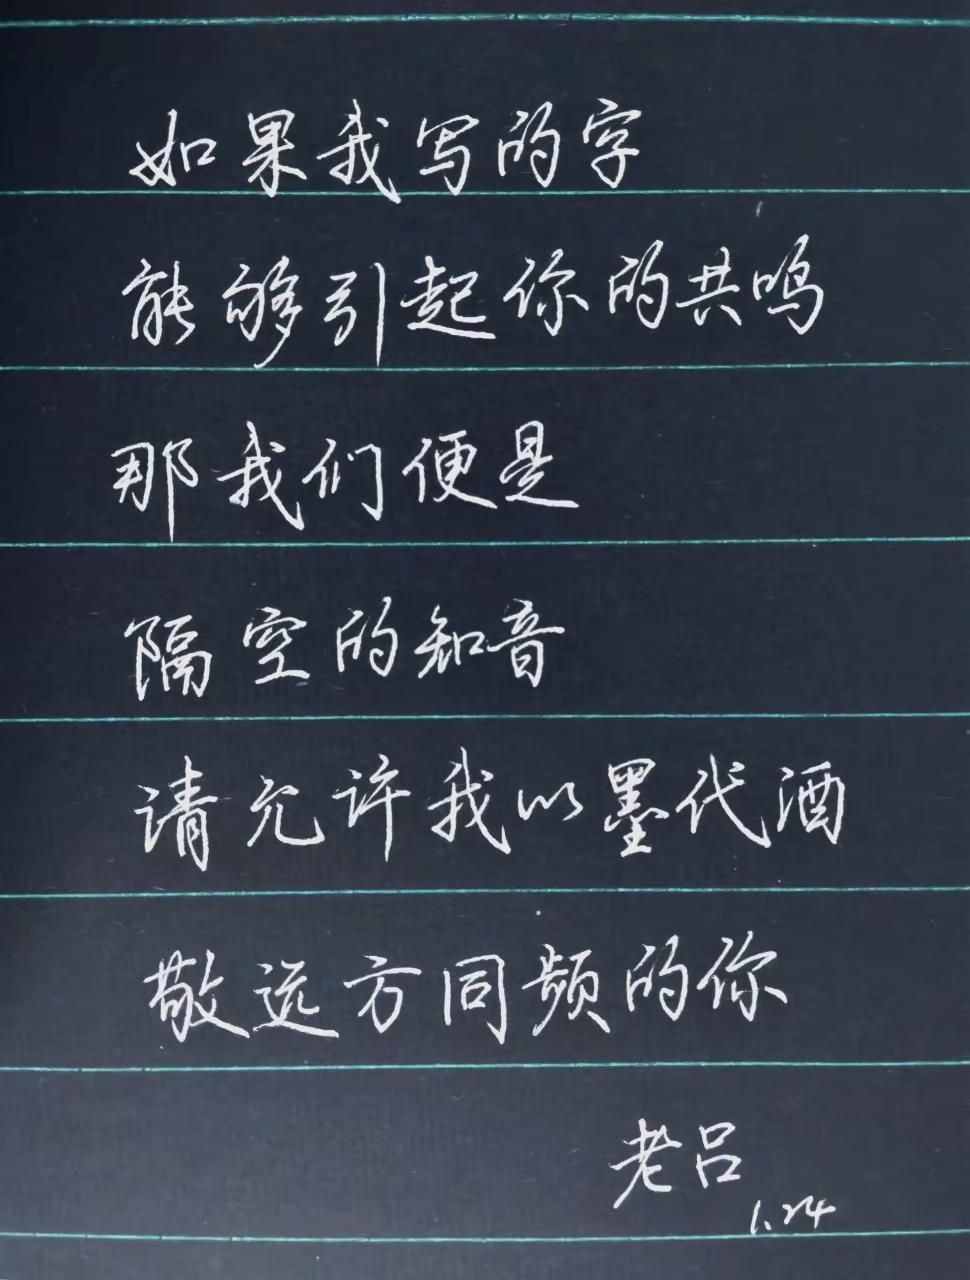 如果我写的字
能够引起你的共鸣
那我们便是
隔空的知音
请允许我以墨代酒
敬远方同频的你
老吕
1.24